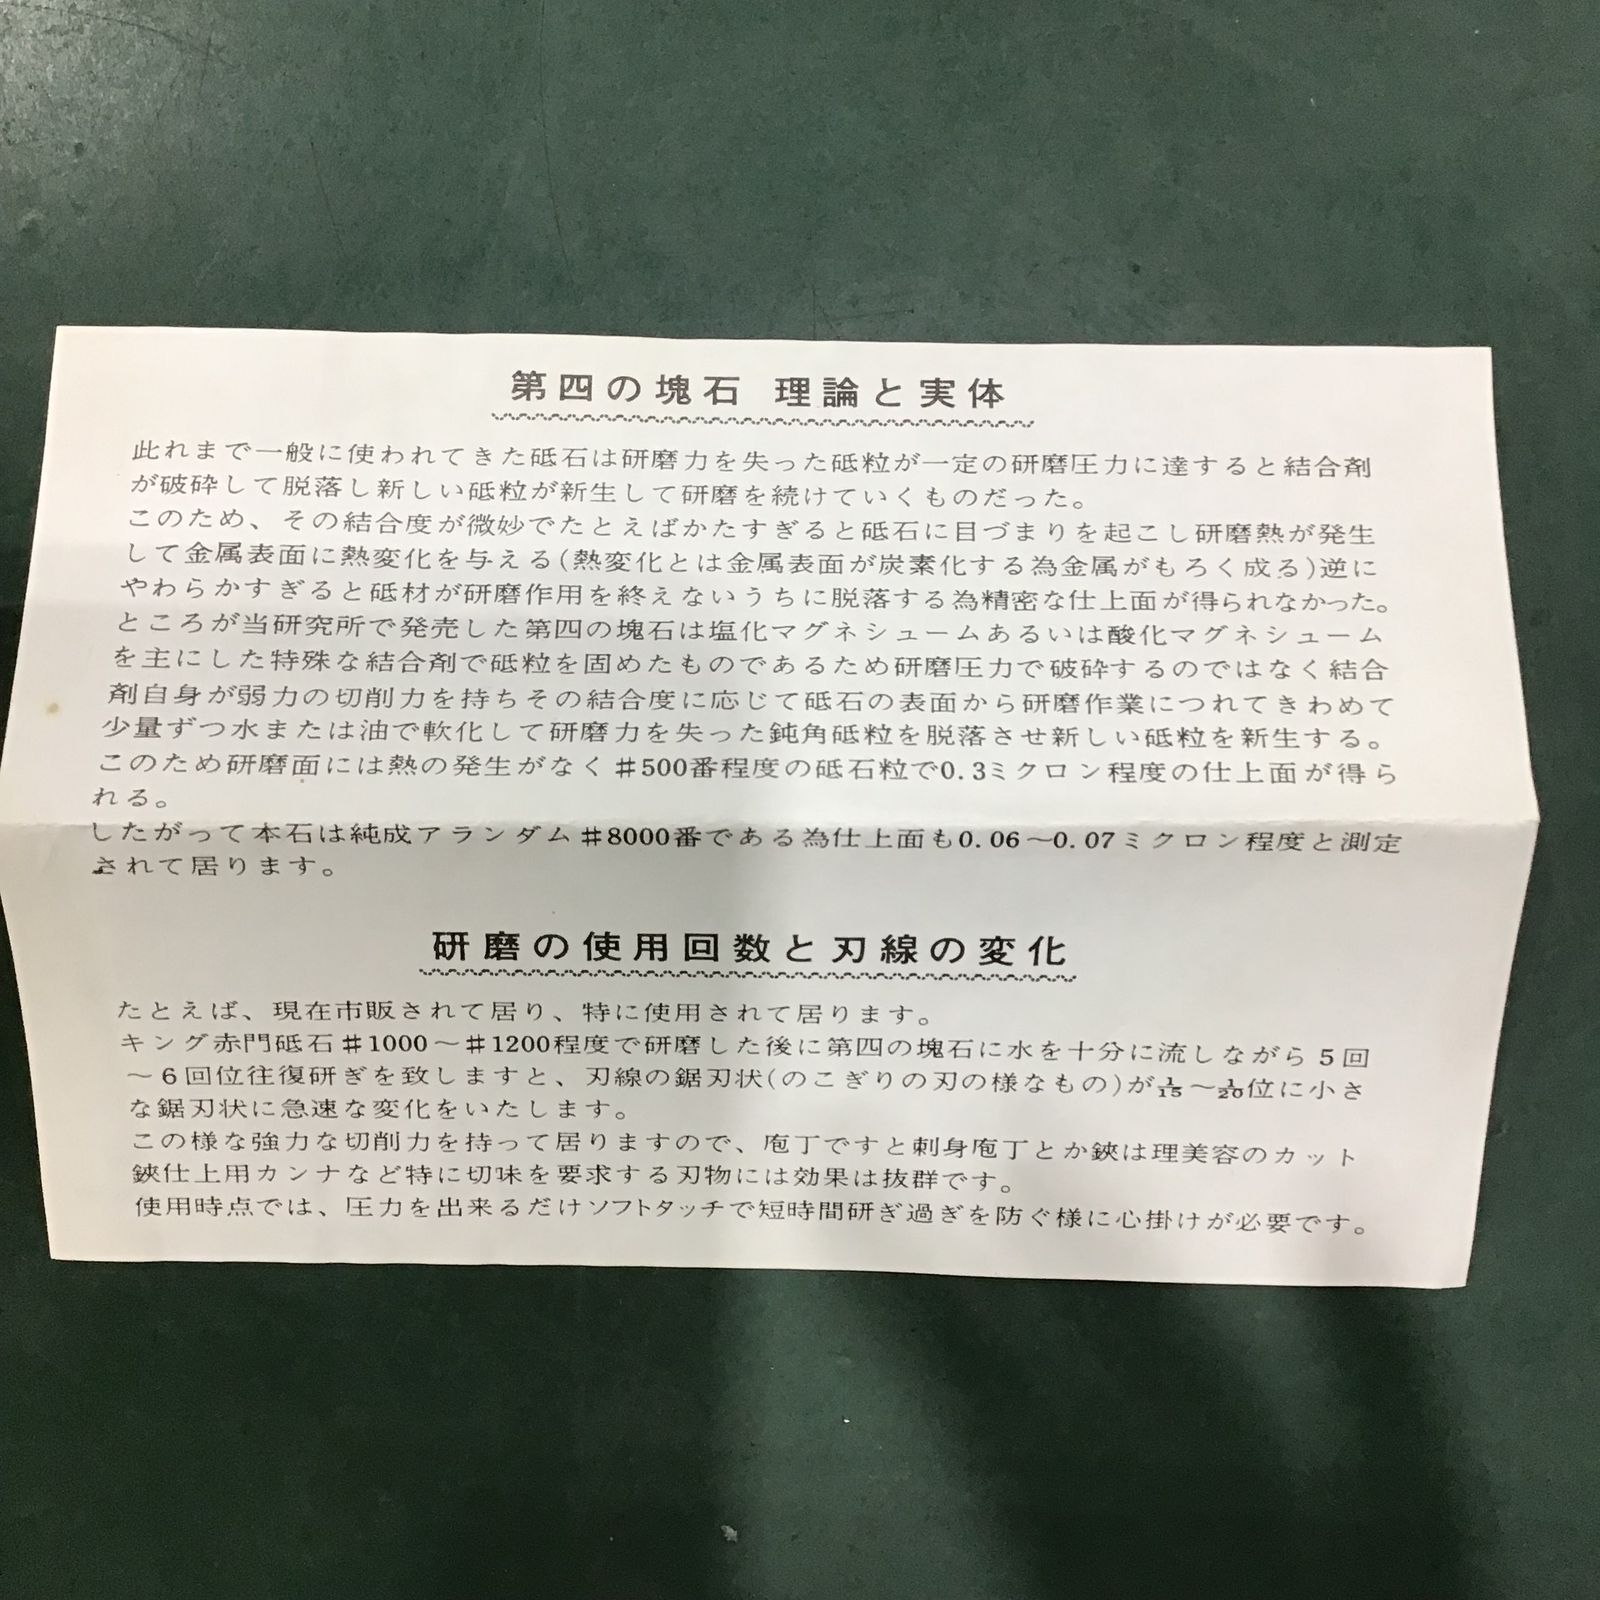 第四の塊石 理論と実体
此れまで一般に使われてきた砥石は研磨力を失った砥粒が一定の研磨圧力に達すると結合剤
が破砕して脱落し新しい砥粒が新生して研磨を続けていくものだった。
このため、その結合度が微妙でたとえばかたすぎると砥石に目づまりを起こし研磨熱が発生
して金属表面に熱変化を与える(熱変化とは金属表面が炭素化する為金属がもろく成る)逆に
やわらかすぎると砥材が研磨作用を終えないうちに脱落する為精密な仕上面が得られなかった。
ところが当研究所で発売した第四の塊石は塩化マグネシュームあるいは酸化マグネシューム
を主にした特殊な結合剤で砥粒を固めたものであるため研磨圧力で破砕するのではなく結合
剤自身が弱力の切削力を持ちその結合度に応じて砥石の表面から研磨作業につれてきわめて
少量ずつ水または油で軟化して研磨力を失った鈍角砥粒を脱落させ新しい砥粒を新生する。
このため研磨面には熱の発生がなく♯500番程度の砥石粒で0.3ミクロン程度の仕上面が得ら
れる。
したがって本石は純成アランダム♯8000番である為仕上面も0.06〜0.07ミクロン程度と測定
されて居ります。
研磨の使用回数と刃線の変化
たとえば、現在市販されて居り、特に使用されて居ります。
キング赤門砥石♯1000〜♯1200程度で研磨した後に第四の塊石に水を十分に流しながら5回
〜6回位往復研ぎを致しますと、刃線の鋸刃状(のこぎりの刃の様なもの)が1/15〜1/20位に小さ
な鋸刃状に急速な変化をいたします。
この様な強力な切削力を持って居りますので、庖丁ですと刺身庖丁とか鋏は理美容のカット
鋏仕上用カンナなど特に切味を要求する刃物には効果は抜群です。
使用時点では、圧力を出来るだけソフトタッチで短時間研ぎ過ぎを防ぐ様に心掛けが必要です。